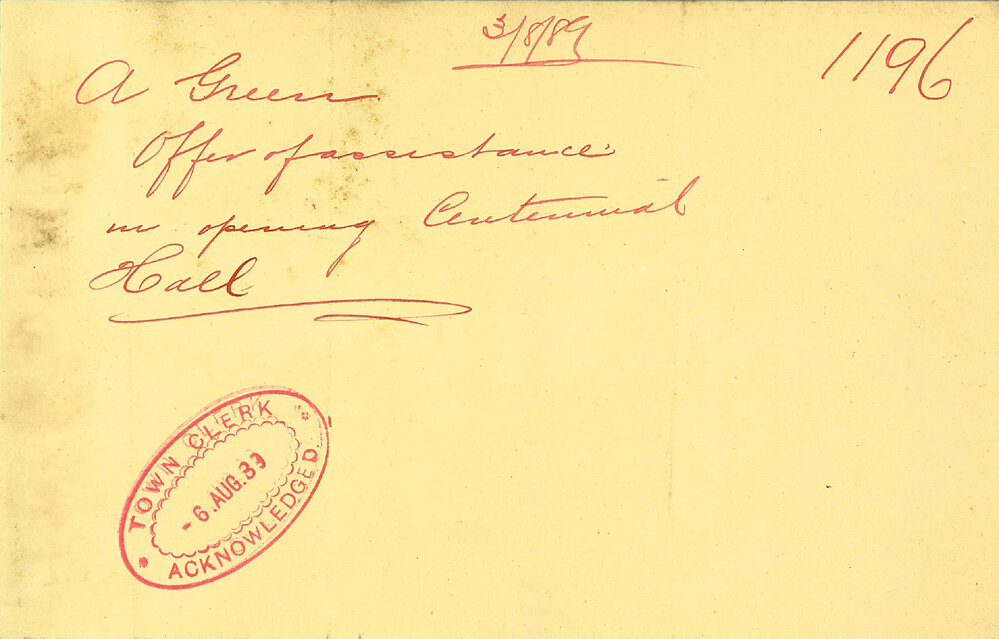 3/8/89
1196
A Green
Offer of assistance
in opening Centennial
Hall
TOWN CLERK
- 6. AUG. 89
ACKNOWLEDGED.